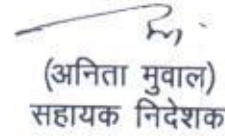 (अनिता मुवाल)
सहायक निदेशक